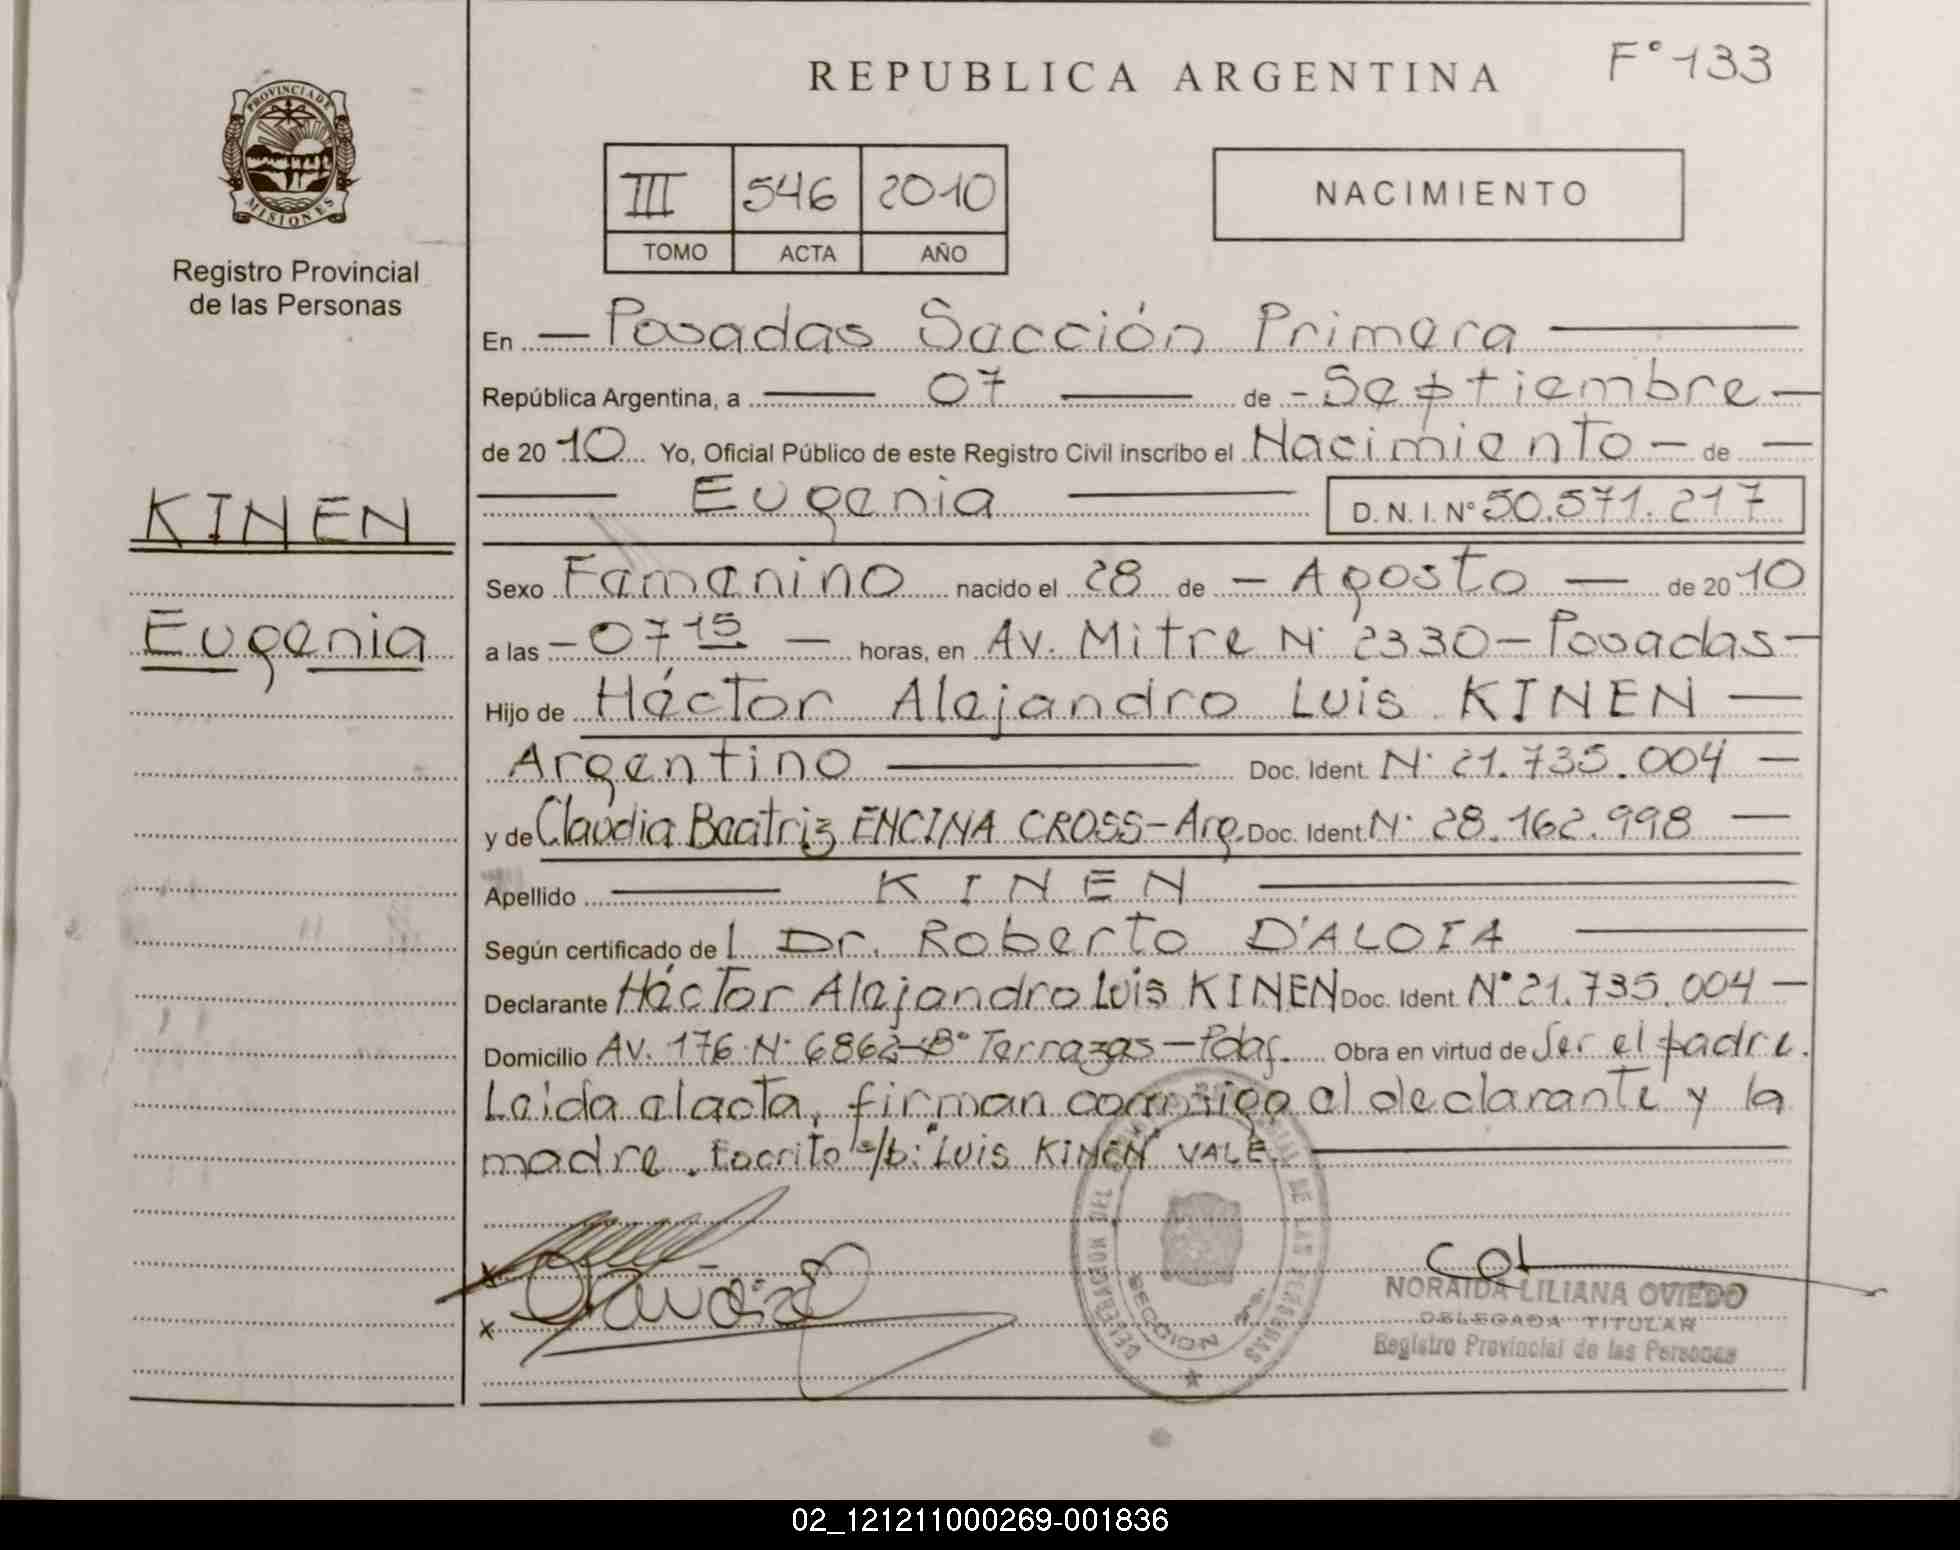 REPUBLICA ARGENTINA
F° 133
PROVINCIA DE
MISIONES
Registro Provincial
de las Personas
III 546 2010
TOMO ACTA AÑO
NACIMIENTO
En Posadas Sección Primera
República Argentina, a 07 de Septiembre
de 2010 Yo, Oficial Público de este Registro Civil inscribo el Nacimiento de
Eugenia D.N.I. N° 50.571.217
KINEN
Eugenia
Sexo Femenino nacido el 28 de Agosto de 2010
a las 07 15 horas, en Av. Mitre N° 2330 - Posadas
Hijo de Héctor Alejandro Luis KINEN
Argentino Doc. Ident. N° 21.735.004
y de Claudia Beatriz ENCINA CROSS - Arg. Doc. Ident. N° 28.162.998
Apellido KINEN
Según certificado de l Dr. Roberto D'ALOIA
Declarante Héctor Alejandro Luis KINEN Doc. Ident. N° 21.735.004
Domicilio Av. 176 N° 6862 - B° Terrazas - Pdas. Obra en virtud de Ser el padre.
Leida el acta, firman conmigo el declarante y la
madre. Escrito s/b: "Luis KINEN" VALE.
x
x
DELEGACION DEL DE LAS PERSONAS
SECCION
NORAIDA LILIANA OVIEDO
DELEGADA TITULAR
Registro Provincial de las Personas
02_121211000269-001836